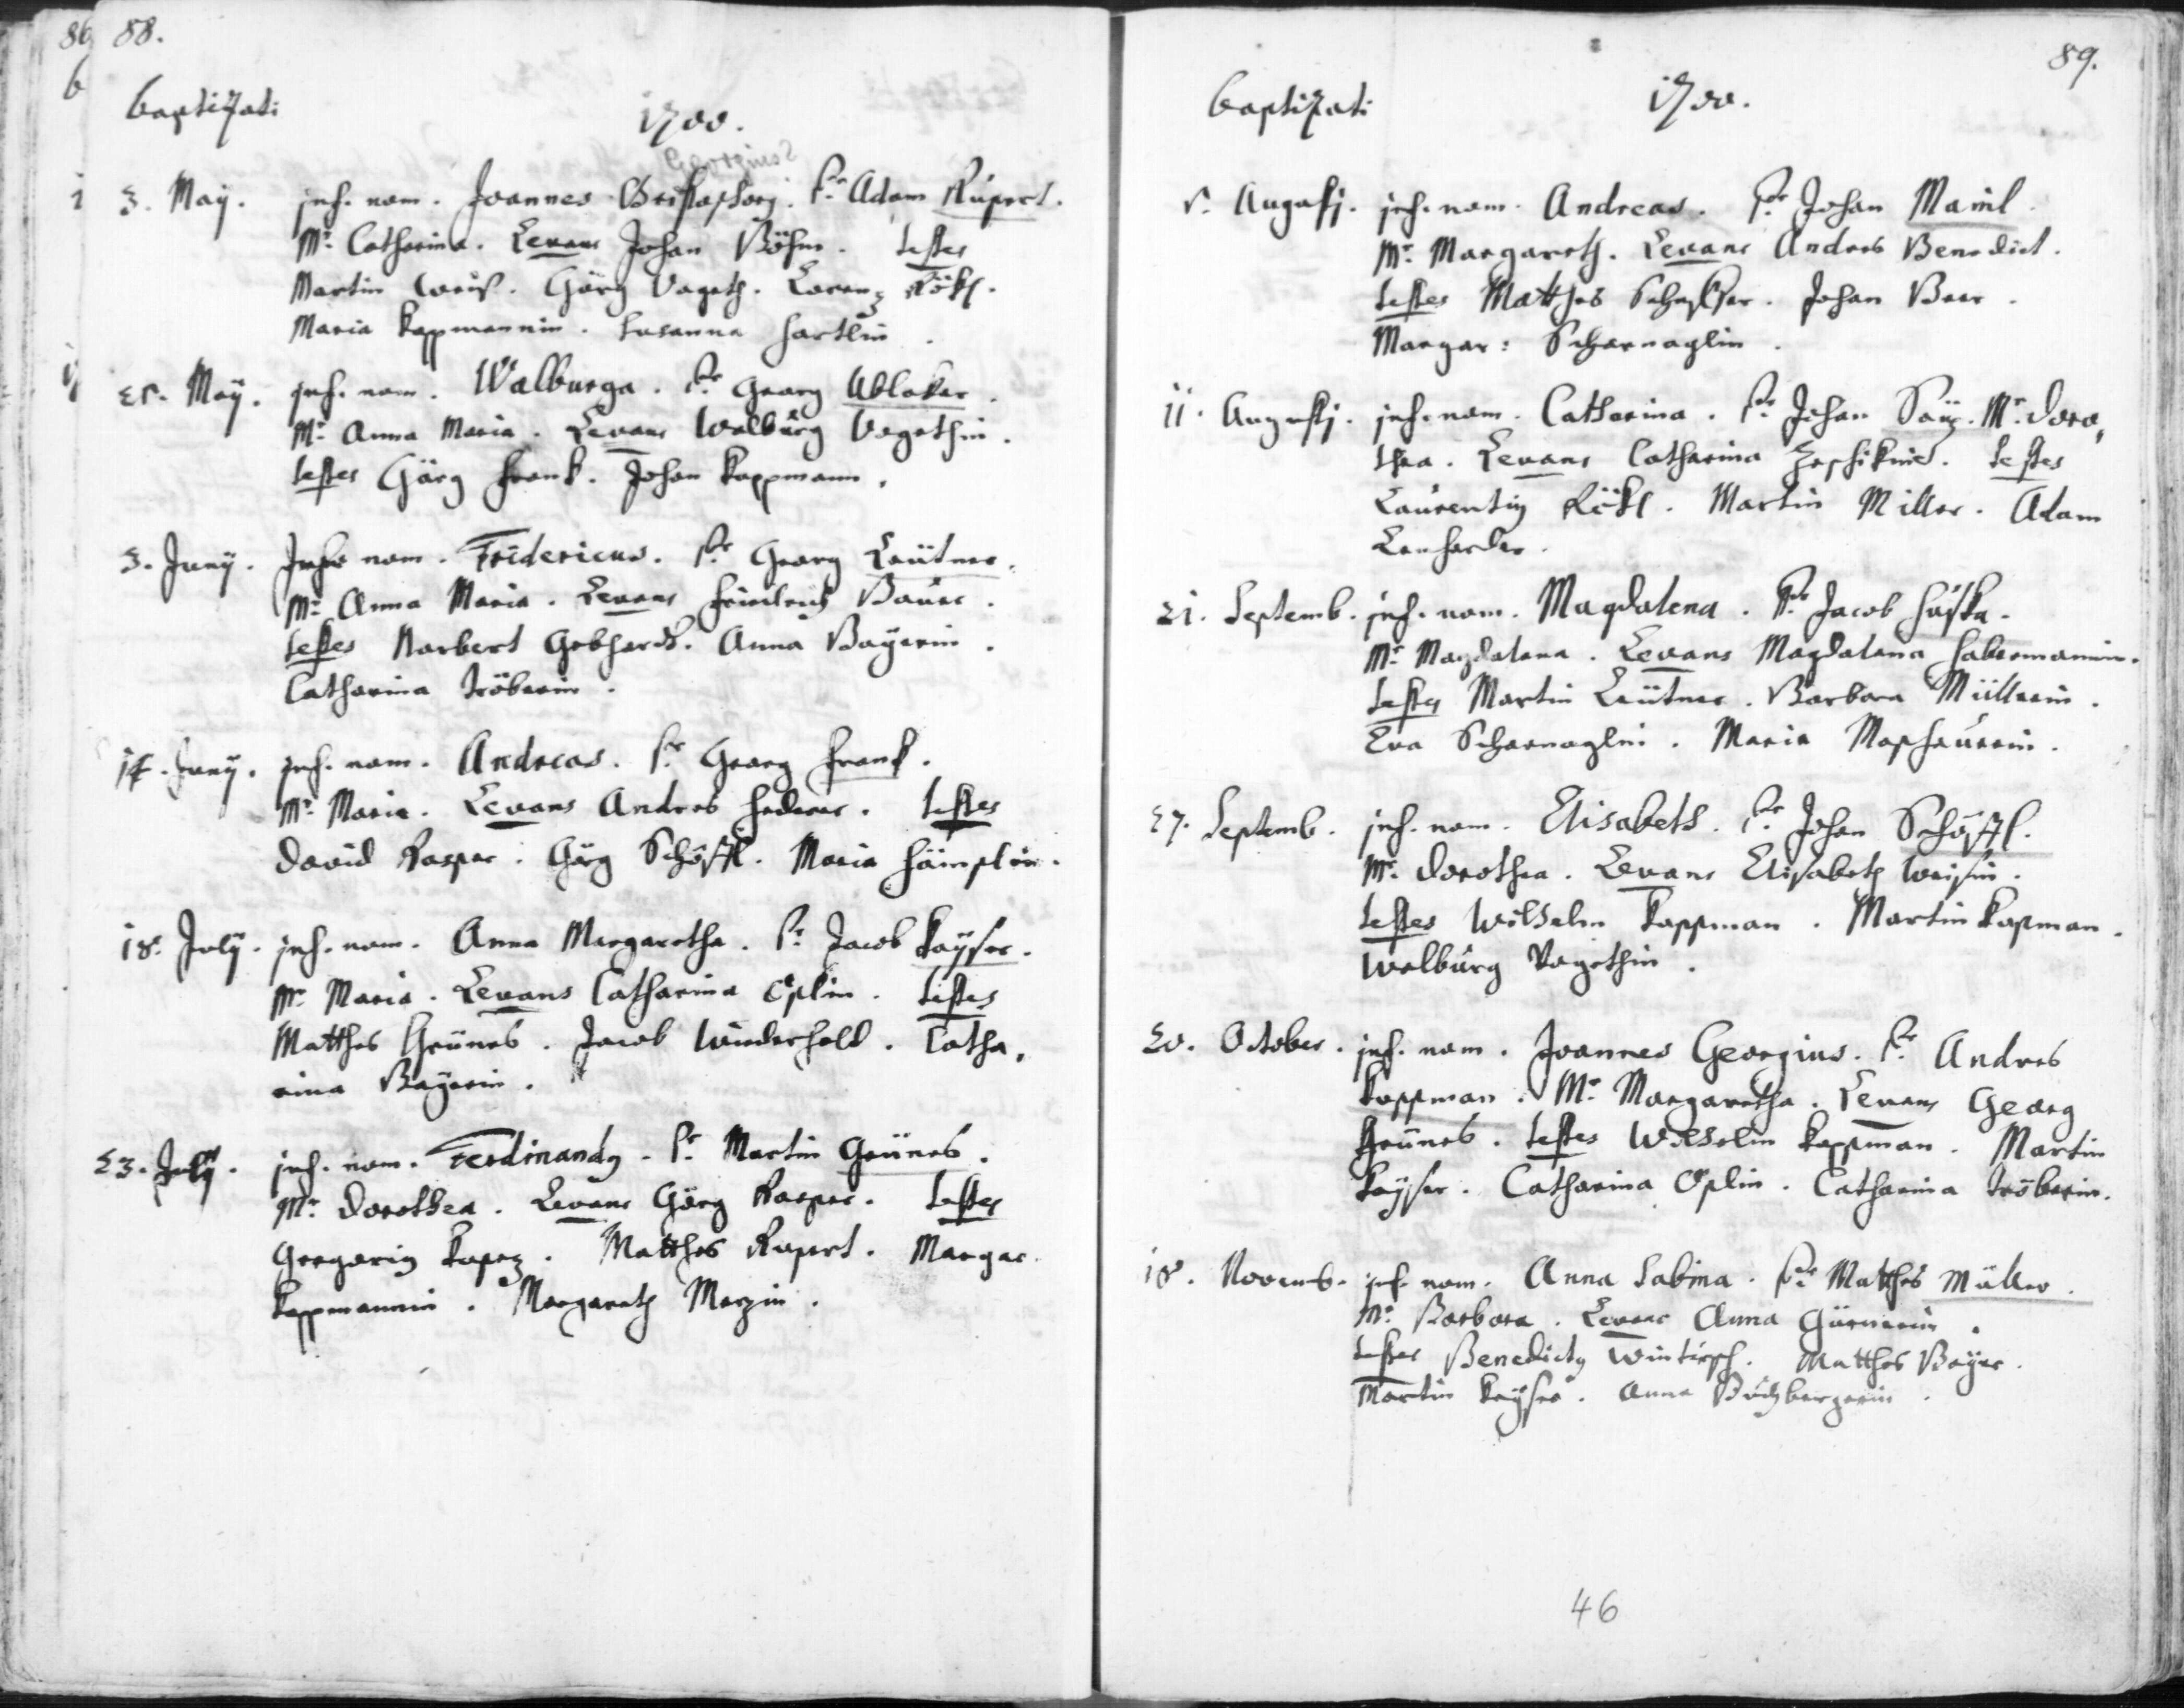 86 88.
Baptizati
1700.
Georgius?
3. May. inf. nom. Joannes. Pr. Adam Rupert.
Mr. Catharina. Levans Johan Böhm. testes
Martin Weiß. Görg Vogeth. Lorenz Rökl.
Maria Kappmannin. Susanna Hartlin.
25. May. inf. nom. Walburga. Pr. Georg Ablaker.
Mr. Anna Maria. Levans Walburg Vogethin.
testes Görg Frank. Johan Kappmann.
3. Juny. Infr nom. Fridericus. Pr. Georg Leütner.
Mr. Anna Maria. Levans Friedrich Bauer.
testes Norbert Gebhardt. Anna Bayerin.
Catharina Tröberin.
14. Juny. inf. nom. Andreas. Pr. Georg Frank.
Mr. Maria. Levans Andres Federer. testes
David Kasper. Görg Schöstl. Maria Häimplin.
18. July. inf. nom. Anna Margaretha. Pr. Jacob Kayser.
Mr. Maria. Levans Catharina Öplin. testes
Matthes Grünes. Jacob Winderhold. Catha,
rina Bayerin.
23. July. inf. nom. Ferdinandg. Pr. Martin Grünes.
Mr. Dorothea. Levans Görg Kasper. testes
Gregorig Kopez. Matthes Rupert. Margar.
Kappmannin. Margareth Merzin.
89.
Baptizati
1700.
5. Augustj. inf. nom. Andreas. Pr. Johan Mainl.
Mr. Margareth. Levans Andres Benedict.
testes Matthes. Johan Beer.
Margar: Scharnaglin.
11. Augustj. inf. nom. Catharina. Pr. Johan Saüz. Mr. Doro,
thea. Levans Catharina. testes
Laurentig Rökl. Martin Miller. Adam
Lenharder.
21. Septemb. inf. nom. Magdalena. Pr. Jacob Huska.
Mr. Magdalena. Levans Magdalena Habermannin.
testes Martin Leütner. Barbara Müllerin.
Eva Scharnaglin. Maria Moshaüserin.
27. Septemb. inf. nom. Elisabeth. Pr. Johan Schöstl.
Mr. Dorothea. Levans Elisabeth Weisin.
testes Wilhelm Kappman. Martin Kapman.
Walburg Vogethin.
20. October. inf. nom. Joannes Georgius. Pr. Andres
Kappman. Mr. Margaretha. Levans Georg
Grünes. testes Wilhelm Kappman. Martin
Kayser. Catharina Öplin. Catharina Tröberin.
18. Novemb. inf. nom. Anna Sabina. Pr. Matthes Müller.
Mr. Barbara. Levans Anna Gürnerin.
testes Benedictg Wintirsch. Matthes Bayer.
Martin Kayser. Anna Buchbergerin.
46